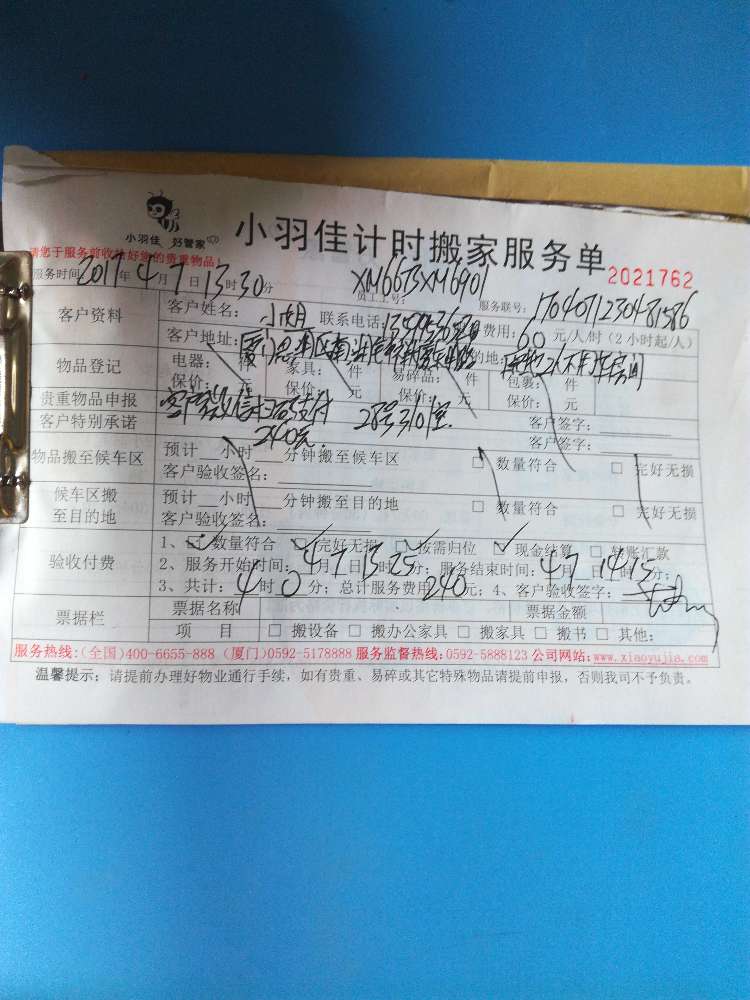 小羽佳 好管家
小羽佳计时搬家服务单
2021762
请您于服务前收拾好您的贵重物品！
服务时间：2017年4月7日13时30分 员工工号：XM6673XM6901 服务联号：
客户资料
客户姓名：小胡 联系电话： 费用：60元/人/时（2小时起/人）
客户地址： 的地：
物品登记
电器： 件 家具： 件 易碎品： 件 包裹： 件
贵重物品申报
保价： 元 保价： 元 保价： 元 保价： 元
客户特别承诺
支付 28号310室
240元
客户签字：
客户签字：
物品搬至候车区
预计 小时 分钟搬至候车区 □ 数量符合 □ 完好无损
客户验收签名：
候车区搬至目的地
预计 小时 分钟搬至目的地 □ 数量符合 □ 完好无损
客户验收签名：
验收付费
1、☑ 数量符合 ☑ 完好无损 ☑ 按需归位 ☑ 现金结算 □ 转账汇款
2、服务开始时间：4月7日13时25分；服务结束时间：4月7日14时15分；
3、共计：4时0分；总计服务费用240元；4、客户验收签字：
票据栏
票据名称 票据金额
项 目 □ 搬设备 □ 搬办公家具 □ 搬家具 □ 搬书 □ 其他:
服务热线:(全国)400-6655-888 (厦门)0592-5178888 服务监督热线:0592-5888123 公司网站:www.xiaoyujia.com
温馨提示：请提前办理好物业通行手续，如有贵重、易碎或其它特殊物品请提前申报，否则我司不予负责。